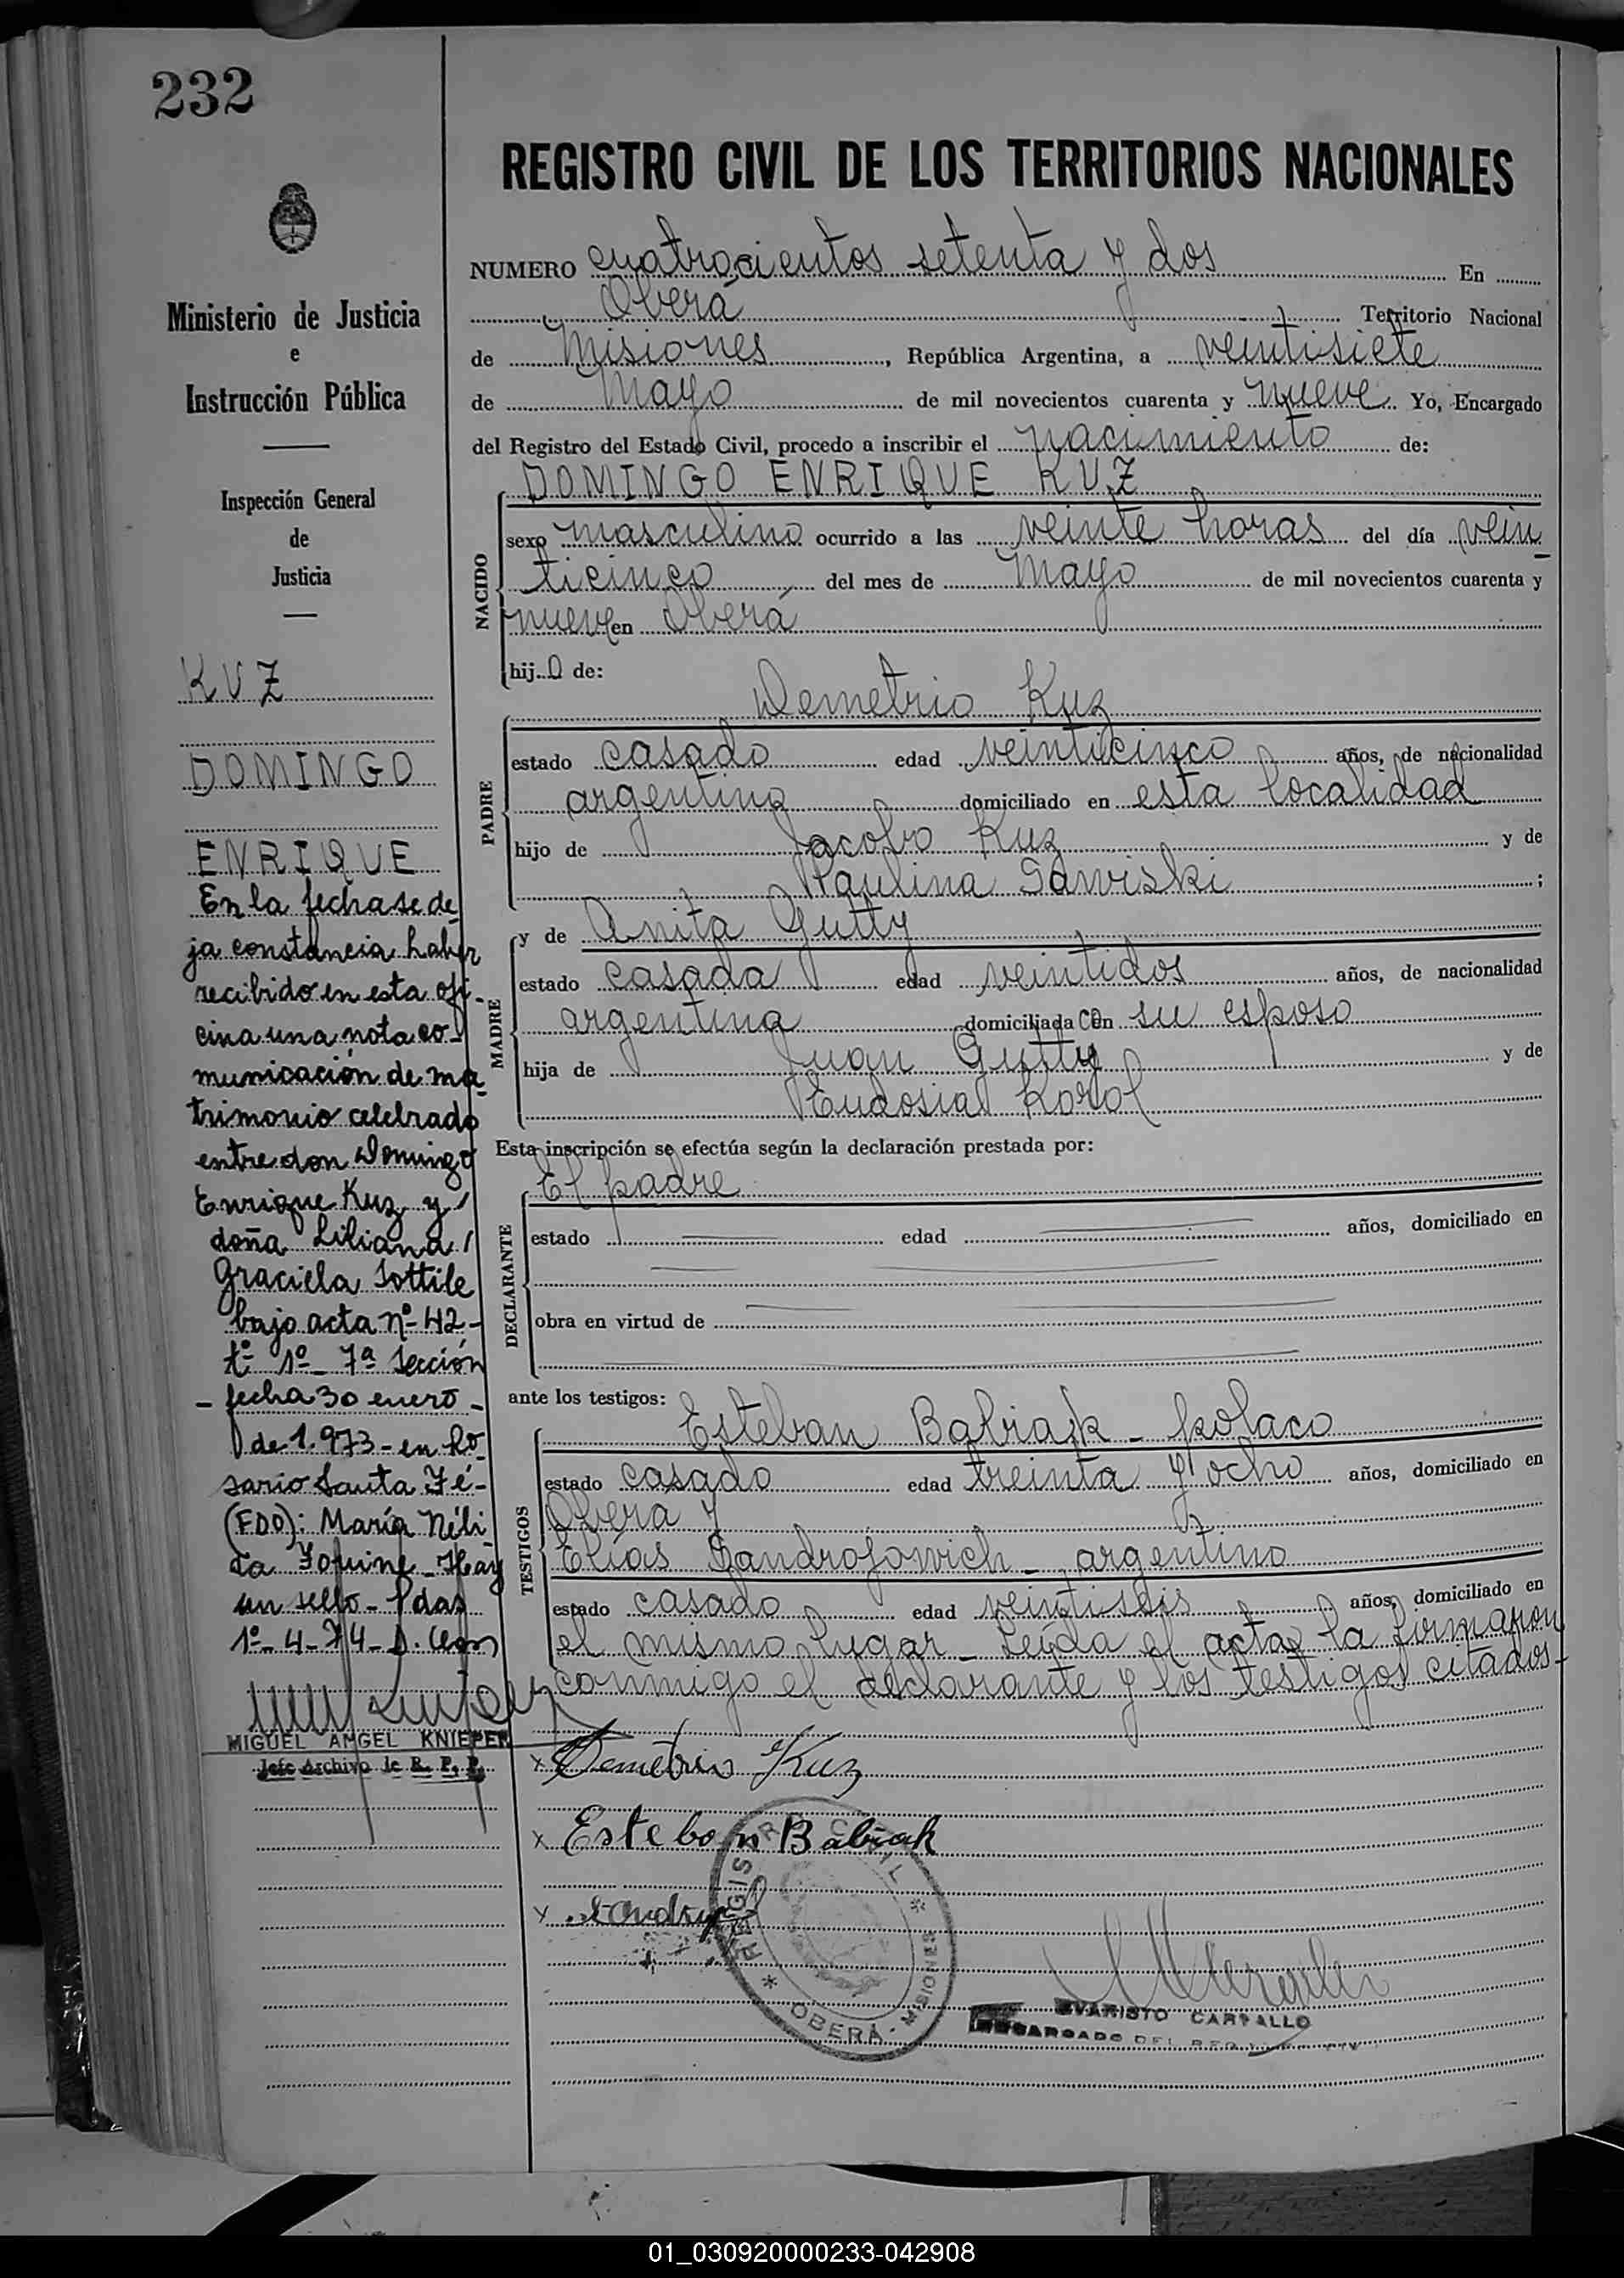 232
REGISTRO CIVIL DE LOS TERRITORIOS NACIONALES
NUMERO cuatrocientos setenta y dos En
Oberá Territorio Nacional
de Misiones, República Argentina, a veintisiete
de Mayo de mil novecientos cuarenta y nueve Yo, Encargado
del Registro del Estado Civil, procedo a inscribir el nacimiento de:
DOMINGO ENRIQUE KUZ
NACIDO
sexo masculino ocurrido a las veinte horas del día vein
ticinco del mes de Mayo de mil novecientos cuarenta y
nueve en Oberá
hijo de:
PADRE
Demetrio Kuz
estado casado edad veinticinco años, de nacionalidad
argentina domiciliado en esta localidad
hijo de Jacobo Kuz y de
Paulina Sawiski;
MADRE
y de Anita Gutty
estado casada edad veintidos años, de nacionalidad
argentina domiciliada con su esposo
hija de Juan Gutty y de
Eudosia Korol
Esta inscripción se efectúa según la declaración prestada por:
DECLARANTE
El padre
estado edad años, domiciliado en
obra en virtud de
ante los testigos:
TESTIGOS
Esteban Babiak - polaco
estado casado edad treinta y ocho años, domiciliado en
Oberá y
Elías - argentino
estado casado edad veintiseis años, domiciliado en
el mismo lugar - Leída el acta la firmaron
conmigo el declarante y los testigos citados -
x Demetrio Kuz
x Esteban Babiak
x
REGISTRO CIVIL * OBERÁ - MISIONES *
EVARISTO CARVALLO
ENCARGADO DEL REG
Ministerio de Justicia
e
Instrucción Pública
Inspección General
de
Justicia
KUZ
DOMINGO
ENRIQUE
En la fecha se de
ja constancia haber
recibido en esta ofi-
cina una nota co-
municación de ma-
trimonio celebrado
entre don Domingo
Enrique Kuz y
doña Liliana
Graciela Sottile
bajo acta nº 42-
tº 1º - 7ª Sección
- fecha 30 enero -
de 1.973 - en Ro-
sario Santa Fé-
(FDO): María Néli
da - Hay
un sello - Pdas
1º-4-74-
MIGUEL ANGEL KNIEPER
Jefe Archivo de R. P. P.
01_030920000233-042908